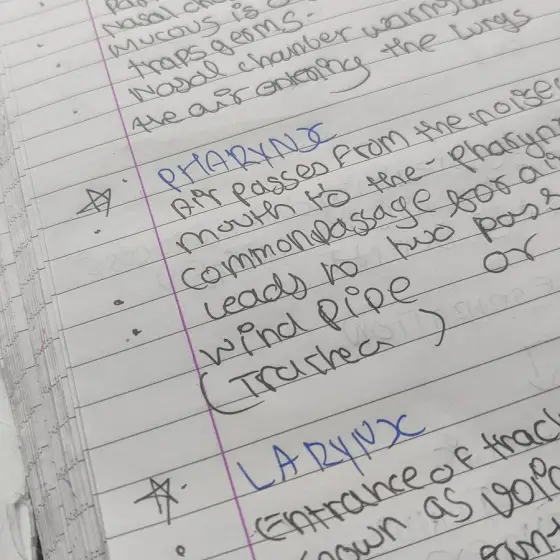 Nasal
Mucous is
traps germs.
Nasal chamber warms
the air entering the lungs
PHARYNX
Air passes from the noise
mouth to the pharynx
common passage for
Leads to two pass
wind pipe or
(Trachea)
LARYNX
Entrance of trac
known as voic